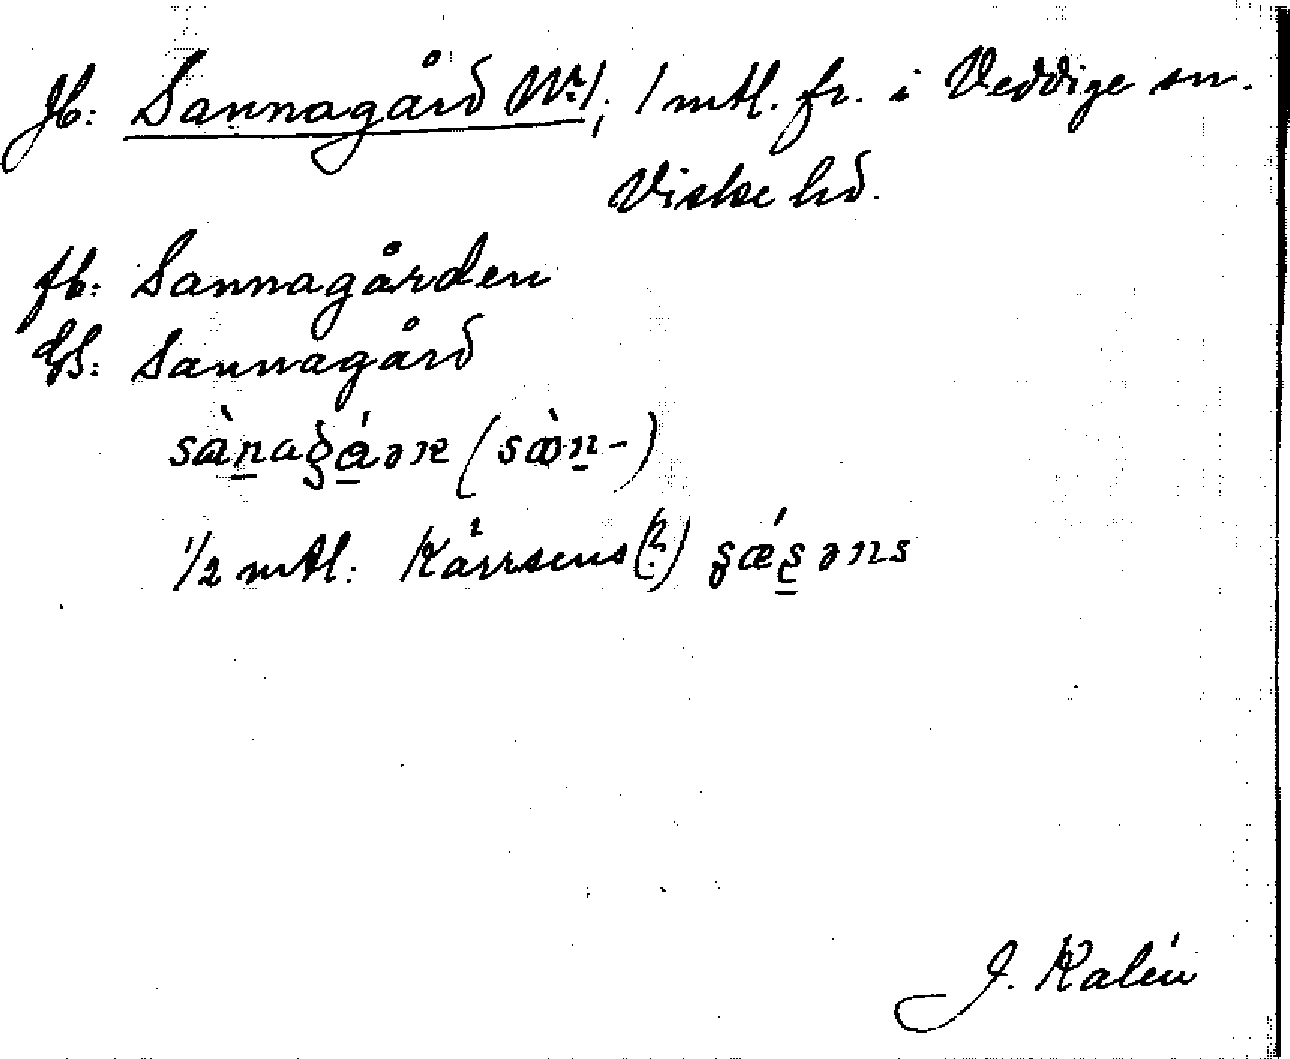 Jb: Sannagård Nr 1, 1 mtl. fr. i Veddige sn.
Viske hd.
fb: Sannagården
GS: Sannagård
½ mtl: Kärrsens(?)
J. Kalén